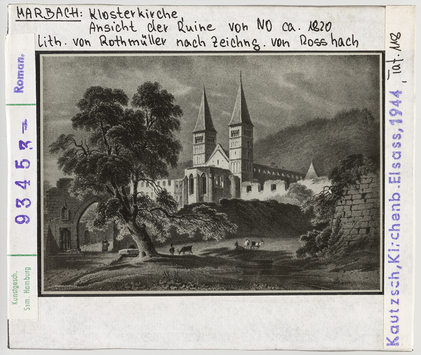 MARBACH: Klosterkirche,
Ansicht der Ruine von NO ca. 1820
Lith. von Rothmüller nach Zeichng. von Rosshach
Roman.
93453
Kunstgesch.
Sem. Hamburg
Kautzsch, Kirchenb. Elsass, 1944, Taf. 148